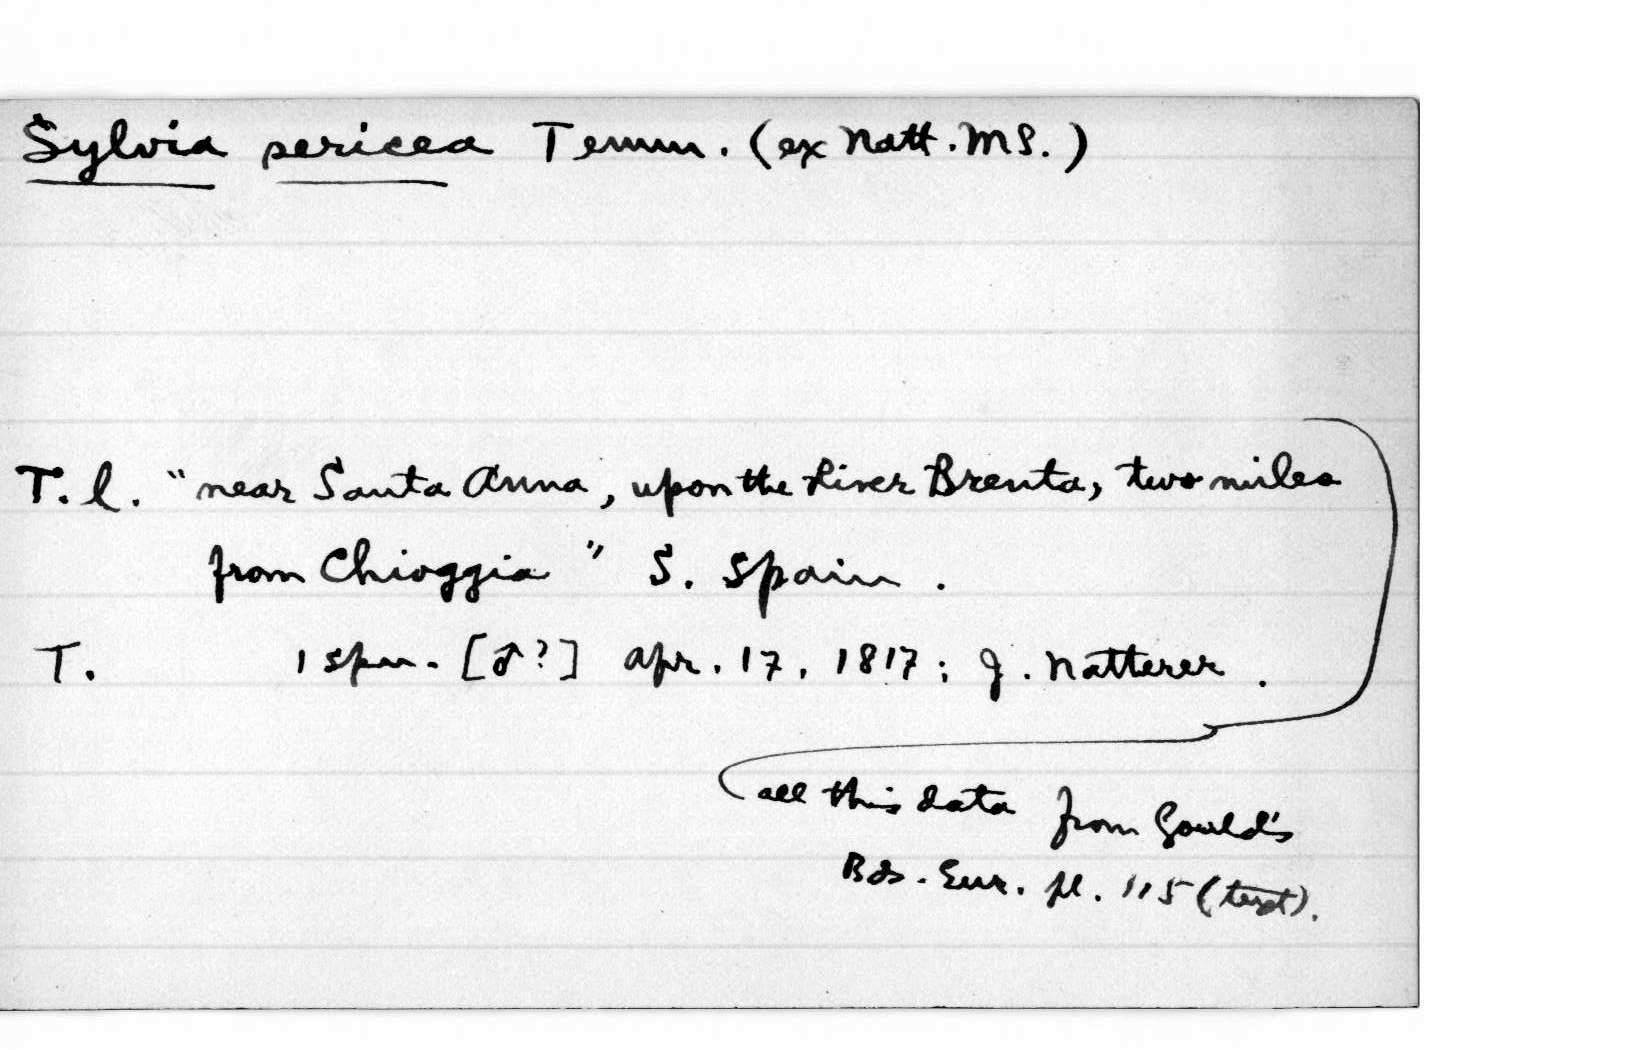 Sylvia sericea Temm. (ex Natt. MS.)
T. l. "near Santa Anna, upon the River Brenta, two miles
from Chioggia" S. Spain.
T. 1 spm. [♂?] Apr. 17, 1817; J. Natterer.
all this data from Gould's
Bds. Eur. pl. 115 (text).